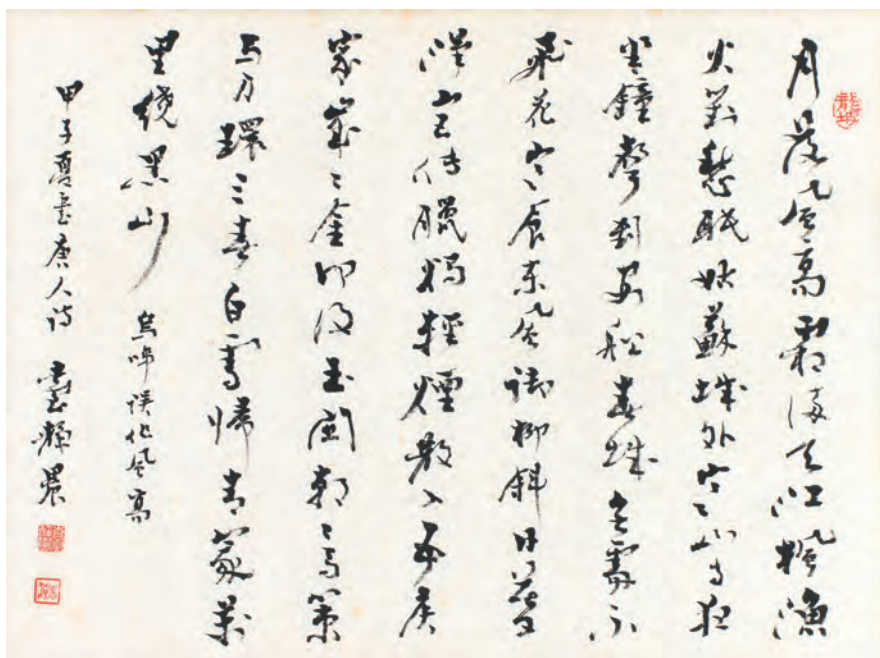 月落風高霜滿天江楓漁
火對愁眠姑蘇城外寒山寺夜
半鐘聲到客船春城無處不
飛花寒食東風御柳斜日暮
漢宮傳臘燭輕煙散入五侯
家歲〻金河復玉關朝〻馬策
與刀環三春白雪歸青冢萬
里繞黑山
烏啼誤作風高
甲子夏書唐人詩 臺靜農
龍坡